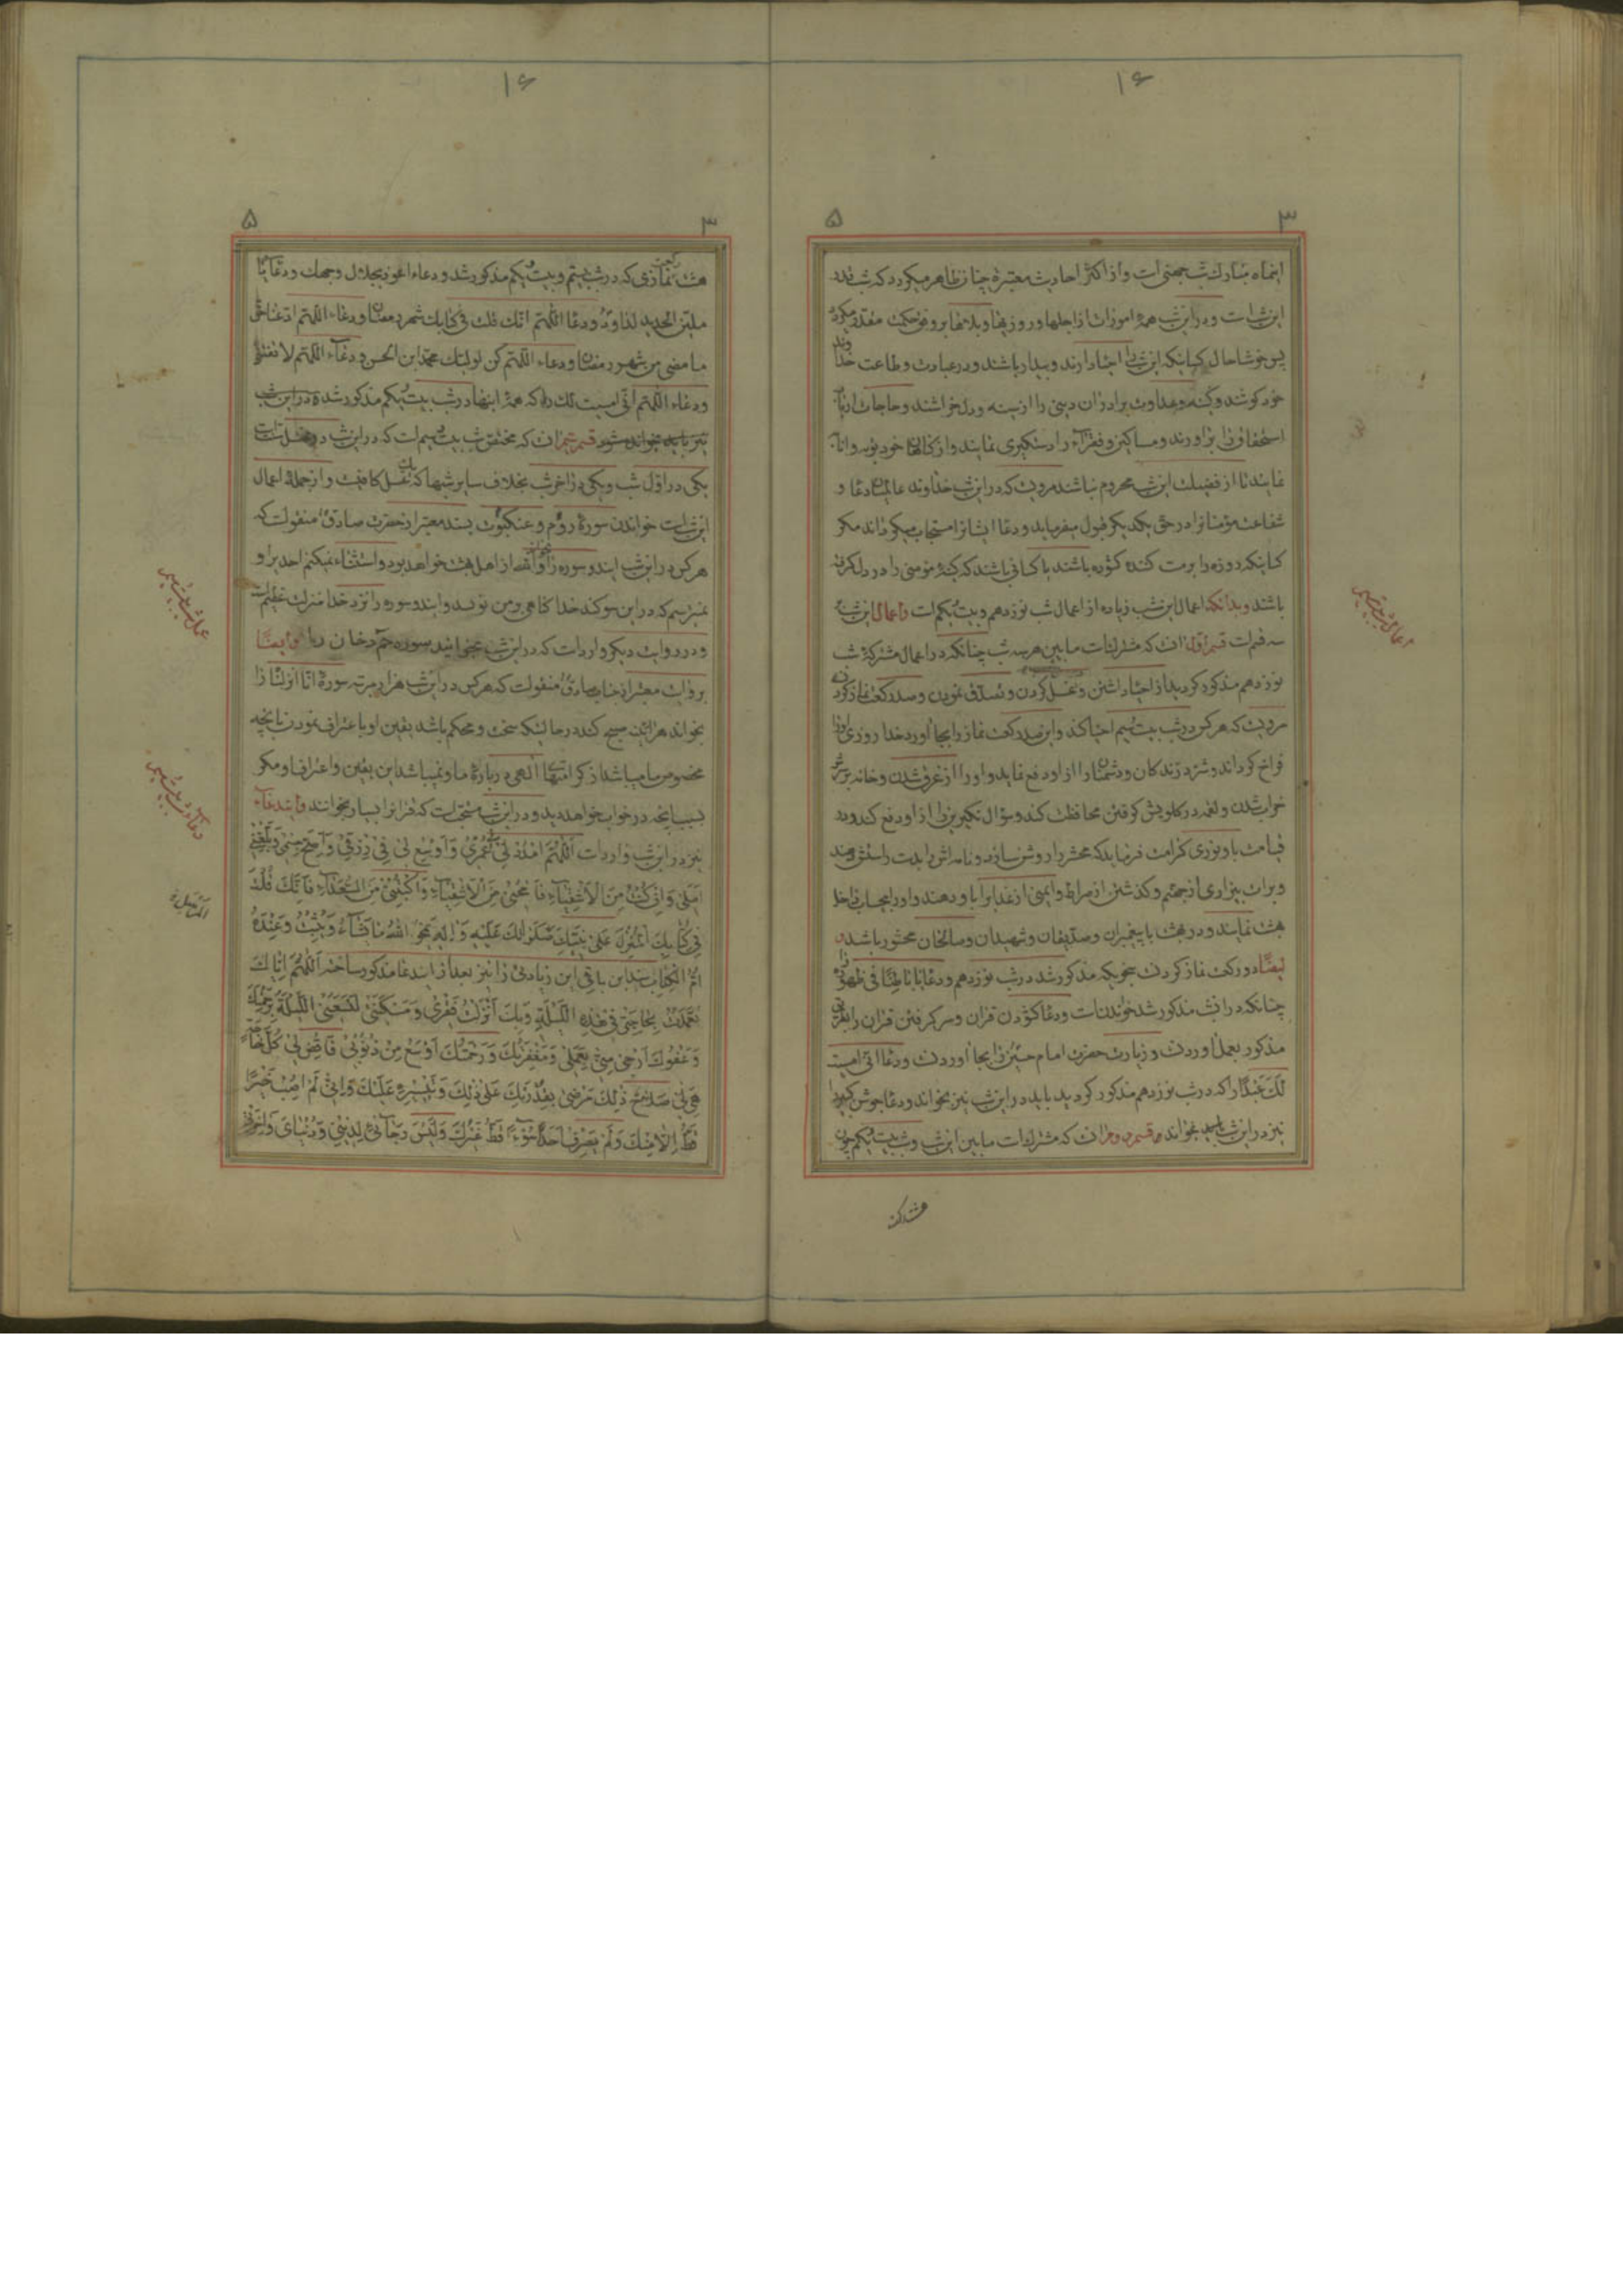 ۱۶
۳ ۵
اینماه مبارک شب جهنی است و از اکثر احادیث معتبره چنان ظاهر میکردد که شب قدر
این شب است و در این شب همهٔ امورات از اجلها و روزیها و بلاها بر وفق حکمت مقدر میکردد
پس خوشا حال کسانیکه این شب را احیا دارند و بیدار باشند و در عبادت و طاعت خداوند
خود کوشند و کینه و عداوت برادران دینی را از سینه و دل خراشند و حاجات ارباب
استحقاق را براورند و مساکین و فقرآء را دستکیری نمایند و از کناهان خود توبه و انابه
نمایند تا از فضیلت این شب محروم نباشند مرویست که در این شب خداوند عالمیان دعا و
شفاعت مؤمنانرا در حق یکدیکر قبول میفرماید و دعا ایشانرا مستجاب میکرداند مکر
کسانیکه روزه را برمت کنده کؤره باشند یا کسانی باشند که کینهٔ مومنی را در دل کرفته
باشند وبدانکه اعمال این شب زیاده از اعمال شب نوزدهم و بیست و یکم است واعمال این شب
سه قسم است قسم اول ان که مشترکست مابین هر سه شب چنانکه در اعمال مشترکهٔ شب
نوزدهم مذکور کردید از احیا داشتن و غسل کردن و تصدق نمودن و صد رکعت نماز کردن
مرویست که هر کس در شب بیست و سیم احیا کند و این صد رکعت نماز را بجا آورد خدا روزی اورا
فراخ کرداند و شر درندکان و دشمنانرا از او دفع نماید و او را از غرق شدن و خانه بر سرش
خراب شدن و لقمه در کلویش کرفتن محافظت کند و سؤال نکیرین را از او دفع کند و در
قیامت باو نوری کرامت فرماید که محشر را روشن سازد و نامه اش را بدست راستش دهند
و برات بیزاری از جهنم و کذشتن از صراط و ایمنی از عذاب را باو دهند و اورا بیحساب داخل
بهشت نمایند و در بهشت با پیغمبران و صدیقان و شهیدان و صالحان محشور باشد و
ایضًا دو رکعت نماز کردن بنحویکه مذکور شد در شب نوزدهم و دعا یا باطِنًا فی ظهوره را
چنانکه در انشب مذکور شد خواندنست و دعا کشودن قران و سر کرفتن قران را بطریق
مذکور بعمل اوردن و زیارت حضرت امام حسین را بجا اوردن و دعا انّی امسیت
لَکَ عَبْدًا را که در شب نوزدهم مذکور کردید باید در این شب نیز بخواند و دعا جوشن کبیر را
نیز در این شب باید بخواند و قسم دوم ان که مشترکست مابین این شب و شب بیست و یکم چون
هشت رکعت
اعمال شب بیست و سیم
۱۶
۳ ۵
هشت رکعت نمازی که در شب بیستم و بیست و یکم مذکور شد و دعاء اعوذ بجلال وجهک و دعا یا
ملین الحدید لداود و دعا اللّهم انک قلت فی کتابک شهر رمضان و دعاء اللّهم ادّ عنا حق
ما مضی من شهر رمضان و دعاء اللّهم کن لولیک محمد ابن الحسن و دعآء اللّهم لا تفتنی
و دعاء اللّهم انّی امسیت لک را که همهٔ اینها در شب بیست و یکم مذکور شده در این شب
نیز باید بخواند شود قسم سیم ان که مختص شب بیست و سیم است که در این شب دو غسل سنت است
یکی در اوّل شب و یکی در اخر شب بخلاف سایر شبها که یک غسل کافیست و از جملهٔ اعمال
این شب است خواندن سورهٔ روم و عنکبوت بسند معتبر از حضرت صادق منقولست که
هر کس در این شب ایندو سوره را بخواند و الله از اهل بهشت خواهد بود و استثناء نمیکنم احدیرا و
نمیترسم که در این سوکند خدا کناهی بر من نویسد و ایندو سوره را نزد خدا منزلت عظیم است
و در روایت دیکر وارد است که در این شب بخوانند سوره حم دخان را وایضًا
بروایت معتبر از جناب صادق منقولست که هر کس در این شب هزار مرتبه سورهٔ انّا انزلنا را
بخواند هر آینه صبح کند در حالتیکه سخت و محکم باشد یقین او با عتراف نمودن بانچه
مخصوص ما میباشد از کرامتهآء الهی در بارهٔ ما و نمیباشد این یقین و اعتراف او مکر
بسبب انچه در خواب خواهد دید و در این شب مستحب است که قرانرا بسیار بخوانند و ایندعآء
نیز در این شب وارد است اَللّهُمَّ امْدُدْ لی فی عُمْری وَ اَوْسِعْ لی فی رِزْقی وَ اَصِحَّ جِسْمی وَ بَلِّغْنی
اَمَلی وَ اِنْ کُنْتُ مِنَ الْاَشْقِیآءِ فَامْحُنی مِنَ الْاَشْقِیآءِ وَ اکْتُبْنی مِنَ السُّعَدآءِ فَاِنَّکَ قُلْتَ
فی کِتابِکَ الْمُنْزَلِ عَلی نَبِیِّکَ صَلَواتُکَ عَلَیْهِ وَ الِهِ یَمْحُو اللهُ ما یَشآءُ وَ یُثْبِتُ وَ عِنْدَهُ
اُمُّ الْکِتابِ سید ابن باقی این زیادتی را نیز بعد از ایندعا مذکور ساخته اَللّهُمَّ اِیّاکَ
تَعَمَّدْتُ بِحاجَتی فی هذِهِ اللَّیْلَةِ وَ بِکَ اَنْزَلْتُ فَقْری وَ مَسْکَنَتی لِتَسَعَنی اللَّیْلَةَ بِرَحْمَتِکَ
وَ عَفْوِکَ اَرْجی مِنّی بِعَمَلی وَ مَغْفِرَتُکَ وَ رَحْمَتُکَ اَوْسَعُ مِنْ ذُنُوبی فَاقْضِ لی کُلَّ حاجَةٍ
هِیَ لی صَلاحٌ ذلِکَ بِقُدْرَتِکَ عَلی ذلِکَ وَ تَیْسیرِهِ عَلَیْکَ وَ اِنّی لَمْ اُصِبْ خَیْرًا
قَطُّ اِلّا مِنْکَ وَ لَمْ یَصْرِفْ اَحَدٌ سُوءً قَطُّ غَیْرُکَ وَ لَیْسَ رَجآئی لِدینی وَ دُنْیایَ
عمل شب بیست و سیم
دعآء در شب بیست و سیم